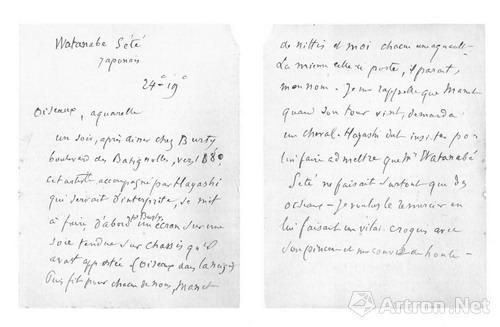 Watanabe Sété
Japonais
24c – 19c
Oiseaux, aquarelle
un soir, après diner chez Burty
boulevard des Batignolles, vers 1880
cet artiste accompagné par Hayashi
qui servait d'interprète, se mit
à faire, d'abord pr Burty, un écran sur une
soie tendue sur chassis qu'il
avait apportée (oiseaux dans la neige)
Puis fit pour chacun de nous, Manet
de Nittis et moi chacun une aquarelle
La mienne celle-ci porte, il parait,
mon nom. Je me rappelle que Manet
quand son tour vint, demanda
un cheval. Hayashi dut insister pour
lui faire admettre que Mr Watanabé
Sété ne faisait surtout que des
oiseaux – Je voulus le remercier en
lui faisant un vilain croquis avec
son pinceau et me couvris de honte –
Artron.Net